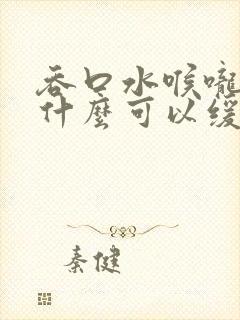 吞口水喉嚨
什麼可以缓
秦健